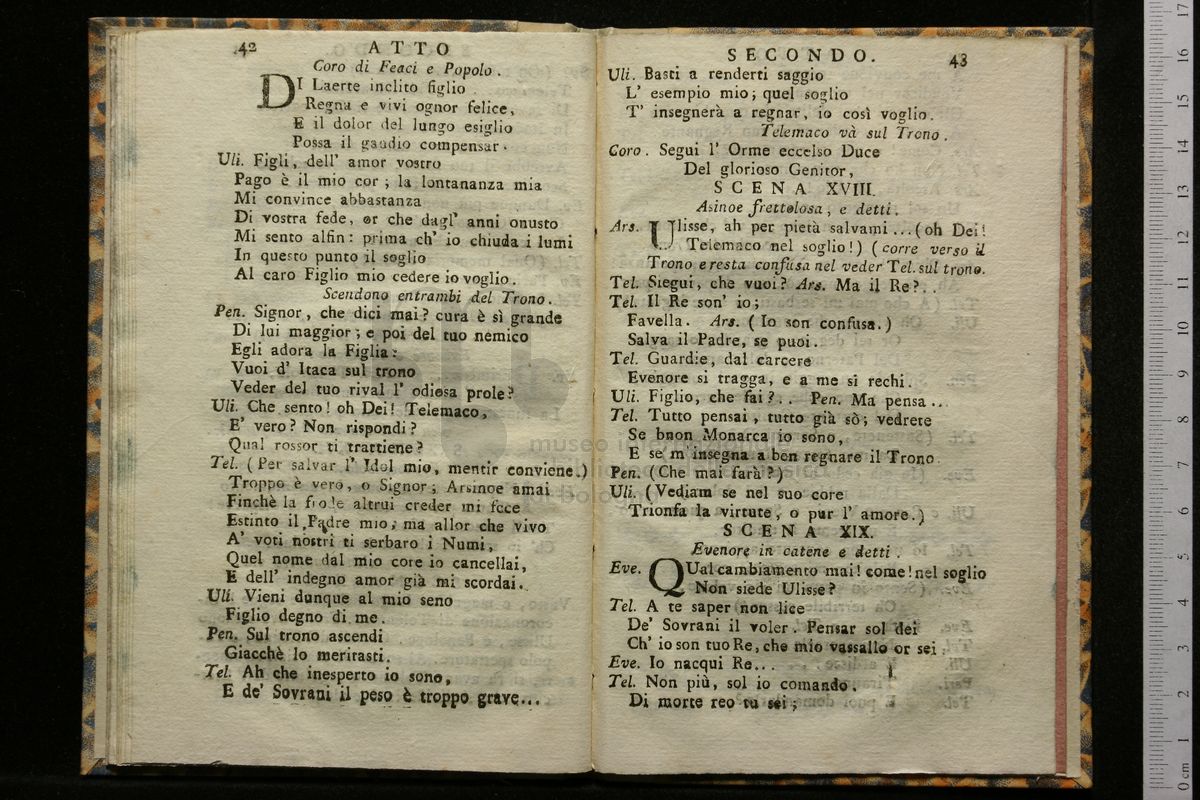 42 ATTO
Coro di Feaci e Popolo.
DI Laerte inclito figlio
Regna e vivi ognor felice,
E il dolor del lungo esiglio
Possa il gaudio compensar.
Uli. Figli, dell' amor vostro
Pago è il mio cor; la lontananza mia
Mi convince abbastanza
Di vostra fede, or che dagl' anni onusto
Mi sento alfin: prima ch' io chiuda i lumi
In questo punto il soglio
Al caro Figlio mio cedere io voglio.
Scendono entrambi del Trono.
Pen. Signor, che dici mai? cura è sì grande
Di lui maggior; e poi del tuo nemico
Egli adora la Figlia:
Vuoi d' Itaca sul trono
Veder del tuo rival l' odiosa prole?
Uli. Che sento! oh Dei! Telemaco,
E' vero? Non rispondi?
Qual rossor ti trattiene?
Tel. (Per salvar l' Idol mio, mentir conviene.)
Troppo è vero, o Signor; Arsinoe amai
Finchè la frode altrui creder mi fece
Estinto il Padre mio; ma allor che vivo
A' voti nostri ti serbaro i Numi,
Quel nome dal mio core io cancellai,
E dell' indegno amor già mi scordai.
Uli. Vieni dunque al mio seno
Figlio degno di me.
Pen. Sul trono ascendi
Giacchè lo meritasti.
Tel. Ah che inesperto io sono,
E de' Sovrani il peso è troppo grave...
SECONDO. 43
Uli. Basti a renderti saggio
L' esempio mio; quel soglio
T' insegnerà a regnar, io così voglio.
Telemaco và sul Trono.
Coro. Segui l' Orme eccelso Duce
Del glorioso Genitor,
SCENA XVIII.
Asinoe frettolosa, e detti.
Ars. Ulisse, ah per pietà salvami... (oh Dei!
Telemaco nel soglio!) (corre verso il
Trono e resta confusa nel veder Tel. sul trono.
Tel. Siegui, che vuoi? Ars. Ma il Re?..
Tel. Il Re son' io;
Favella. Ars. (Io son confusa.)
Salva il Padre, se puoi.
Tel. Guardie, dal carcere
Evenore si tragga, e a me si rechi.
Uli. Figlio, che fai?.. Pen. Ma pensa...
Tel. Tutto pensai, tutto già sò; vedrete
Se buon Monarca io sono,
E se m' insegna a ben regnare il Trono.
Pen. (Che mai farà?)
Uli. (Vediam se nel suo core
Trionfa la virtute, o pur l' amore.)
SCENA XIX.
Evenore in catene e detti.
Eve. QUal cambiamento mai! come! nel soglio
Non siede Ulisse?
Tel. A te saper non lice
De' Sovrani il voler. Pensar sol dei
Ch' io son tuo Re, che mio vassallo or sei.
Eve. Io nacqui Re...
Tel. Non più, sol io comando.
Di morte reo tu sei;